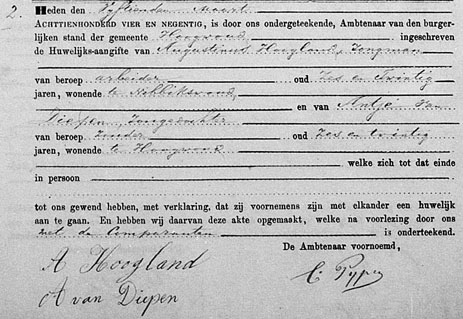 2. Heden den Vijftienden Maart
ACHTTIENHONDERD VIER EN NEGENTIG, is door ons ondergeteekende, Ambtenaar van den burger-
lijken stand der gemeente Hoogwoud ingeschreven
de Huwelijks-aangifte van Augustinus Hoogland, Jongman
van beroep arbeider oud Zes en Twintig
jaren, wonende te Nibbikswoud,
en van Antje van
Diepen, Jongedochter
van beroep Zonder oud Zes en twintig
jaren, wonende te Hoogwoud
welke zich tot dat einde
in persoon
tot ons gewend hebben, met verklaring, dat zij voornemens zijn met elkander een huwelijk
aan te gaan. En hebben wij daarvan deze akte opgemaakt, welke na voorlezing door ons
met de Comparanten is onderteekend.
De Ambtenaar voornoemd,
A Hoogland
A van Diepen